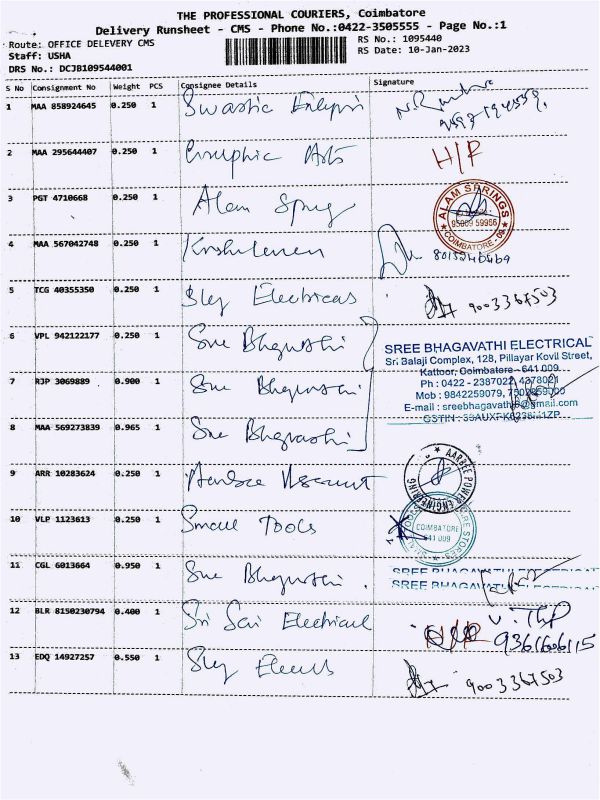 THE PROFESSIONAL COURIERS, Coimbatore
Delivery Runsheet - CMS - Phone No.:0422-3505555 - Page No.:1
Route: OFFICE DELEVERY CMS
RS No.: 1095440
Staff: USHA
RS Date: 10-Jan-2023
DRS No.: DCJB109544001
S No Consignment No Weight PCS Consignee Details Signature
1 MAA 858924645 0.250 1 Swastic
2 MAA 295644407 0.250 1 Graphic Arts H/R
3 PGT 4710668 0.250 1 Alam Spring
ALAM SPRINGS
COIMBATORE
4 MAA 567042748 0.250 1
5 TCG 40355350 0.250 1 Sky Electricas 9003367503
6 VPL 942122177 0.250 1 Sree Bhagvathi
SREE BHAGAVATHI ELECTRICAL
Sri Balaji Complex, 128, Pillayar Kovil Street,
Kattoor, Coimbatore - 641 009
Ph : 0422 - 2387022, 4378021
Mob : 9842259079,
E-mail :
GSTIN :
7 RJP 3069889 0.900 1 Sree Bhagvathi
8 MAA 569273839 0.965 1 Sree Bhagvathi
9 ARR 10283624 0.250 1
AARBEE POWER ENGINEERING
10 VLP 1123613 0.250 1 Small Tools
COIMBATORE
641 009
11 CGL 6013664 0.950 1 Sree Bhagvathi
SREE BHAGAVATHI ELECTRICAL
SREE BHAGAVATHI ELECTRICAL
12 BLR 8150230794 0.400 1 Sri Sai Electrical H/R
9361606115
13 EDQ 14927257 0.550 1 Sky 9003367503